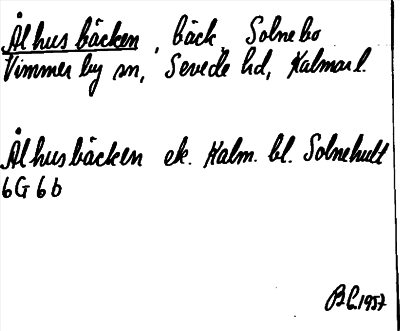 Ålhusbäcken, bäck, Solnebo
Vimmerby sn, Sevede hd, Kalmar l.
Ålhusbäcken ek. Kalm. bl. Solnehult
6G 6b
1957